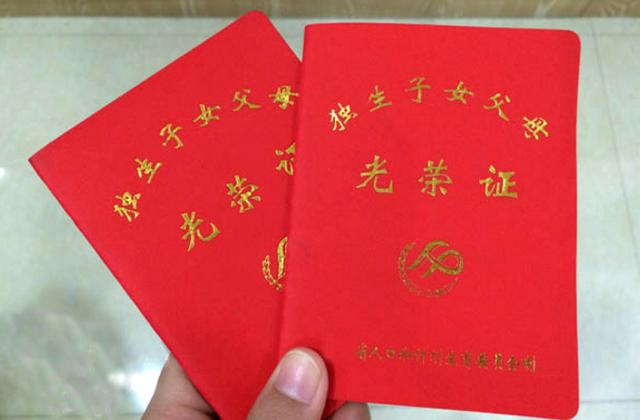 独生子女父母
光荣证
独生子女父母
光荣证
省人口和计划生育委员会制